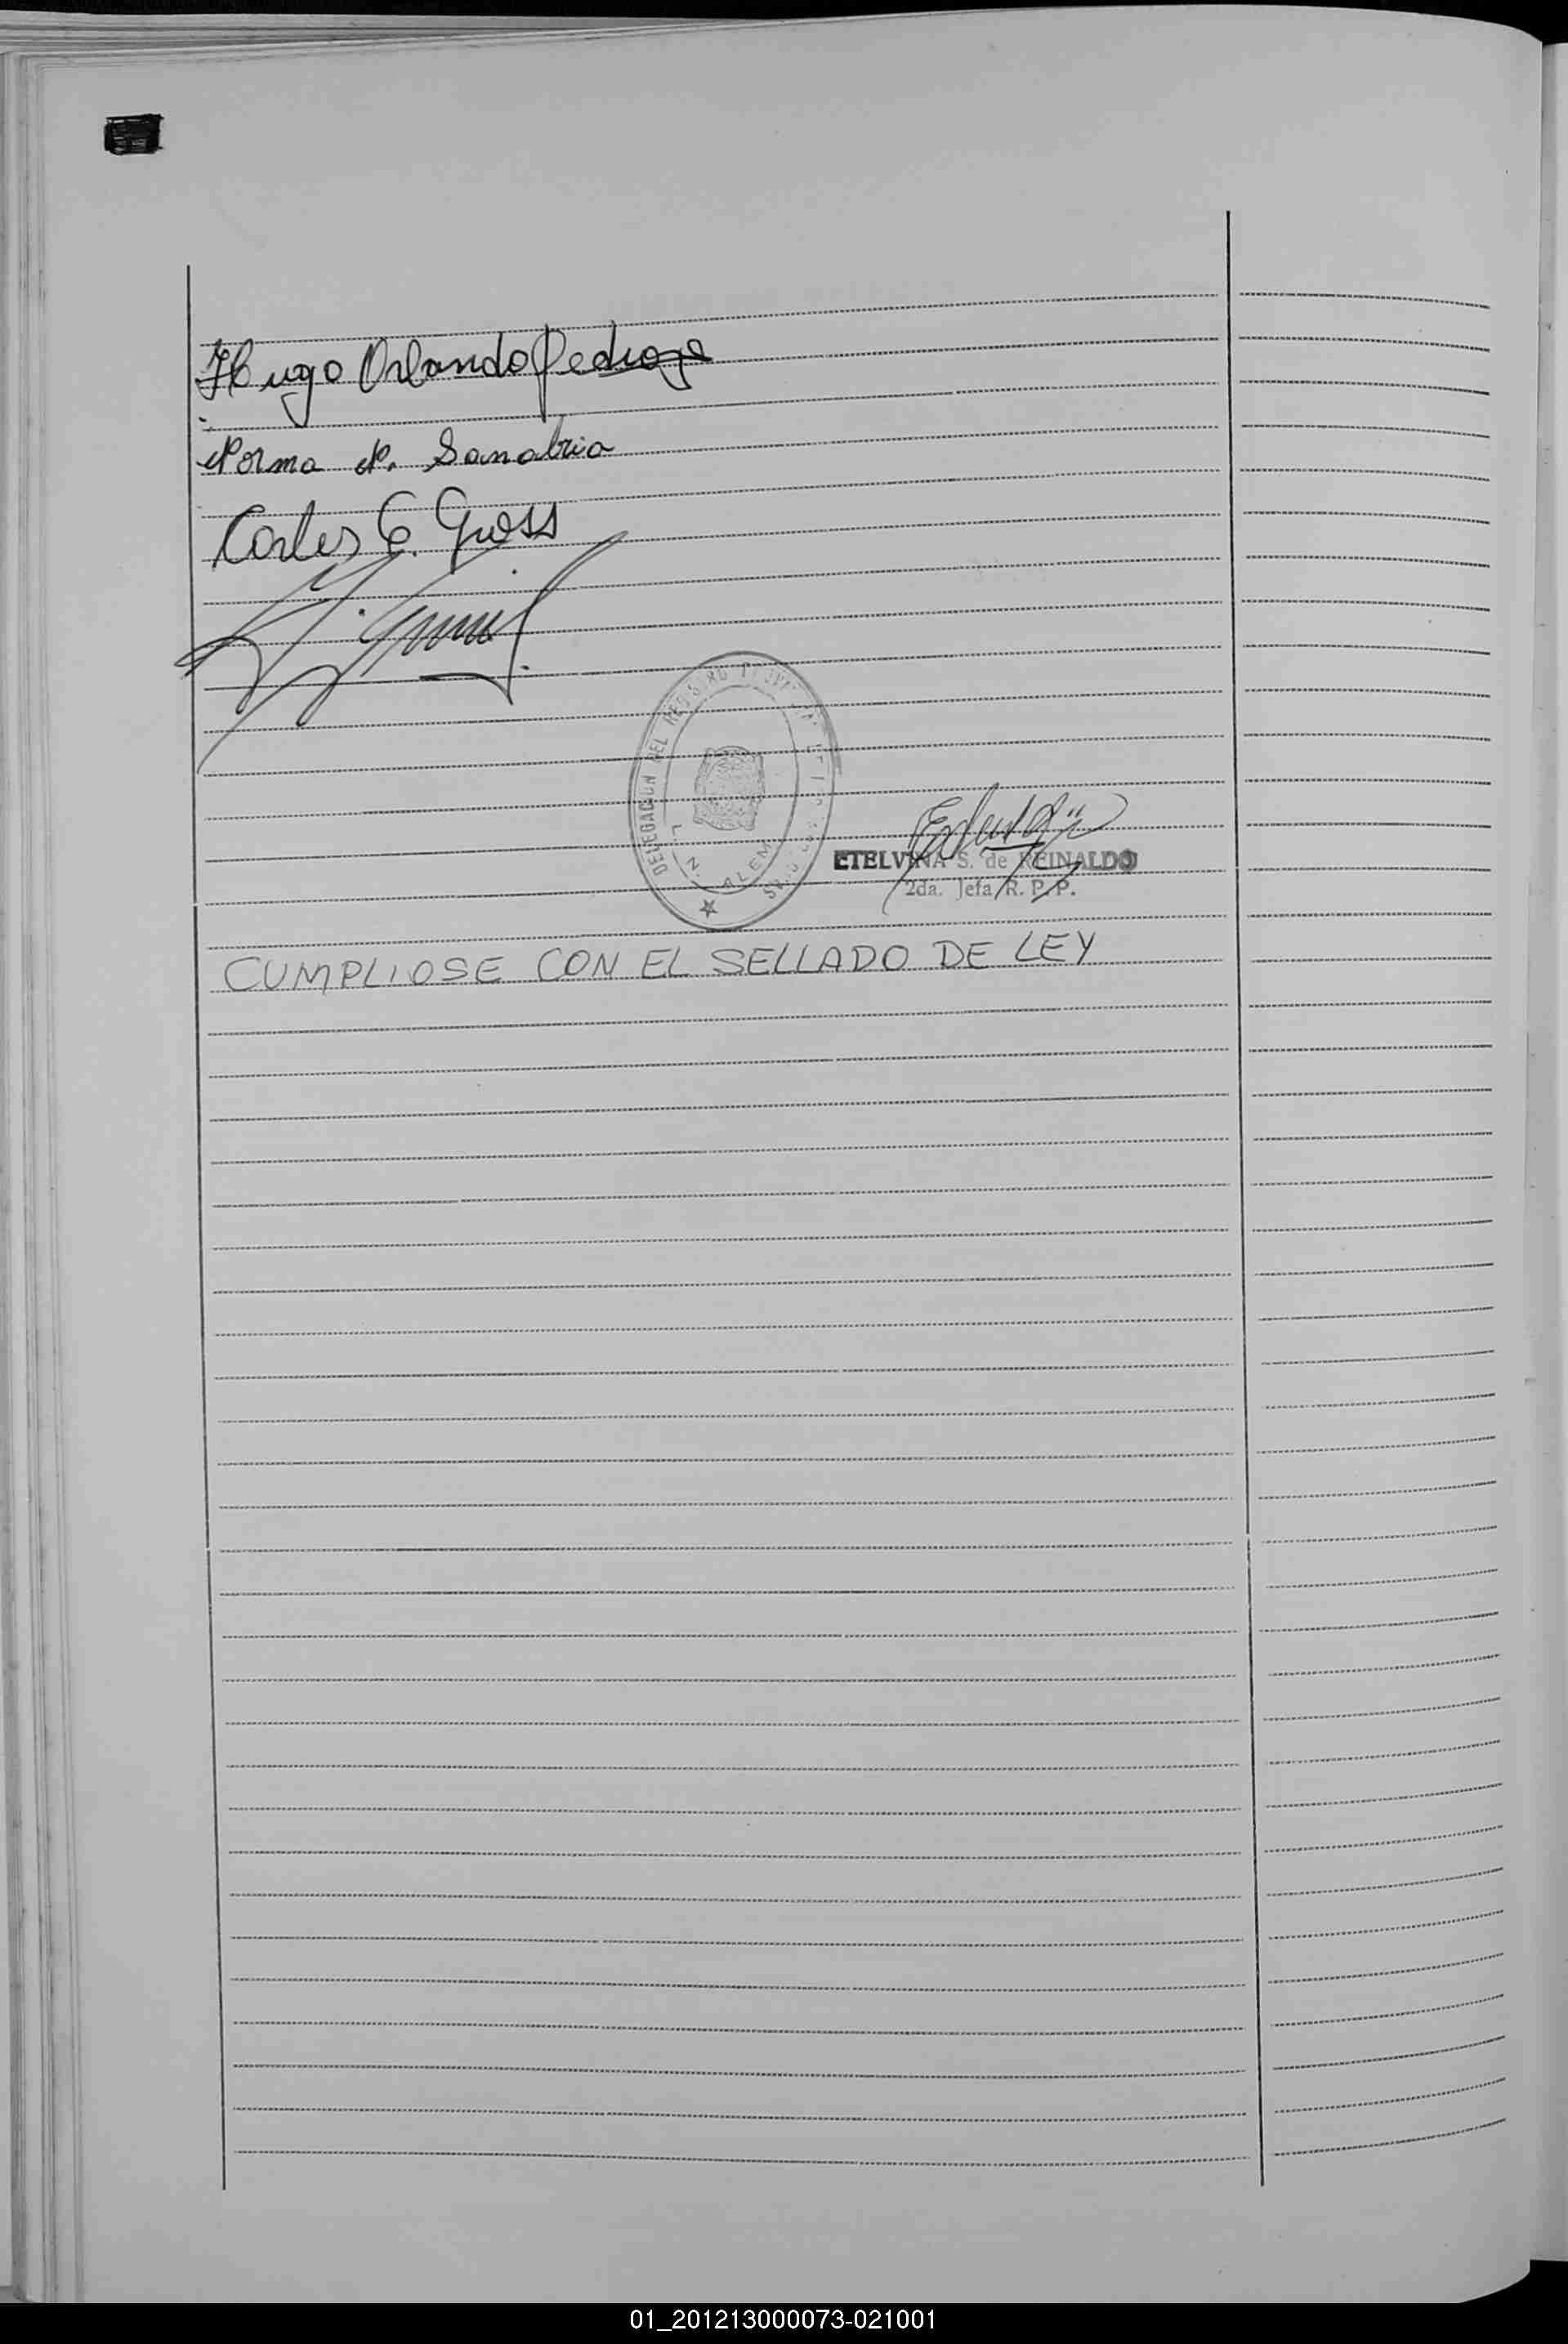 Hugo Orlando Pedrozo
Norma N. Sanabria
Carlos E. Gross
DELEGACION DEL REGISTRO
L. N. ALEM
ETELVINA S. de REINALDO
2da. Jefa R. P. P.
CUMPLIOSE CON EL SELLADO DE LEY
01_201213000073-021001